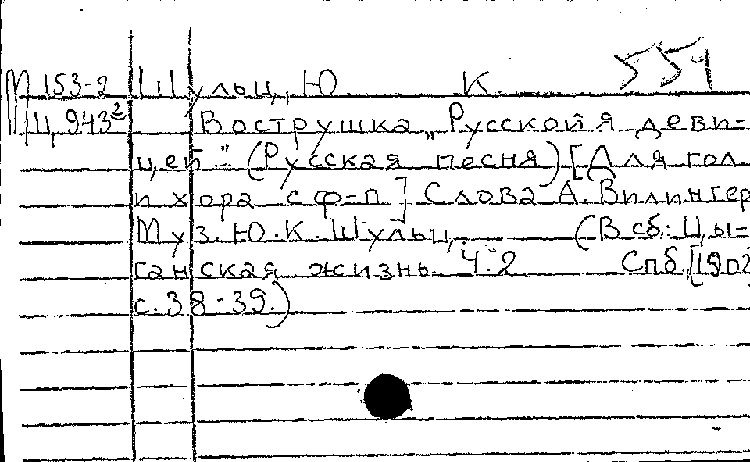 554
М 153-2 Шульц, Ю. К.
М/Ц 943² Вострушка „Русской я деви-
цей" (Русская песня) [Для гол
и хора с ф-п] Слова А. Вилингер
Муз. Ю. К. Шульц. (В сб: Цы-
ганская жизнь. Ч. 2 Спб. [190?
с. 38-39.)